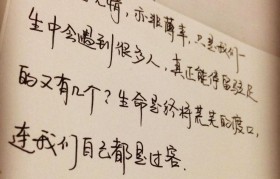 无情，亦非薄幸，只是我们一
生中会遇到很多人，真正能停留驻足
的又有几个？生命是终将荒芜的渡口，
连我们自己都是过客.